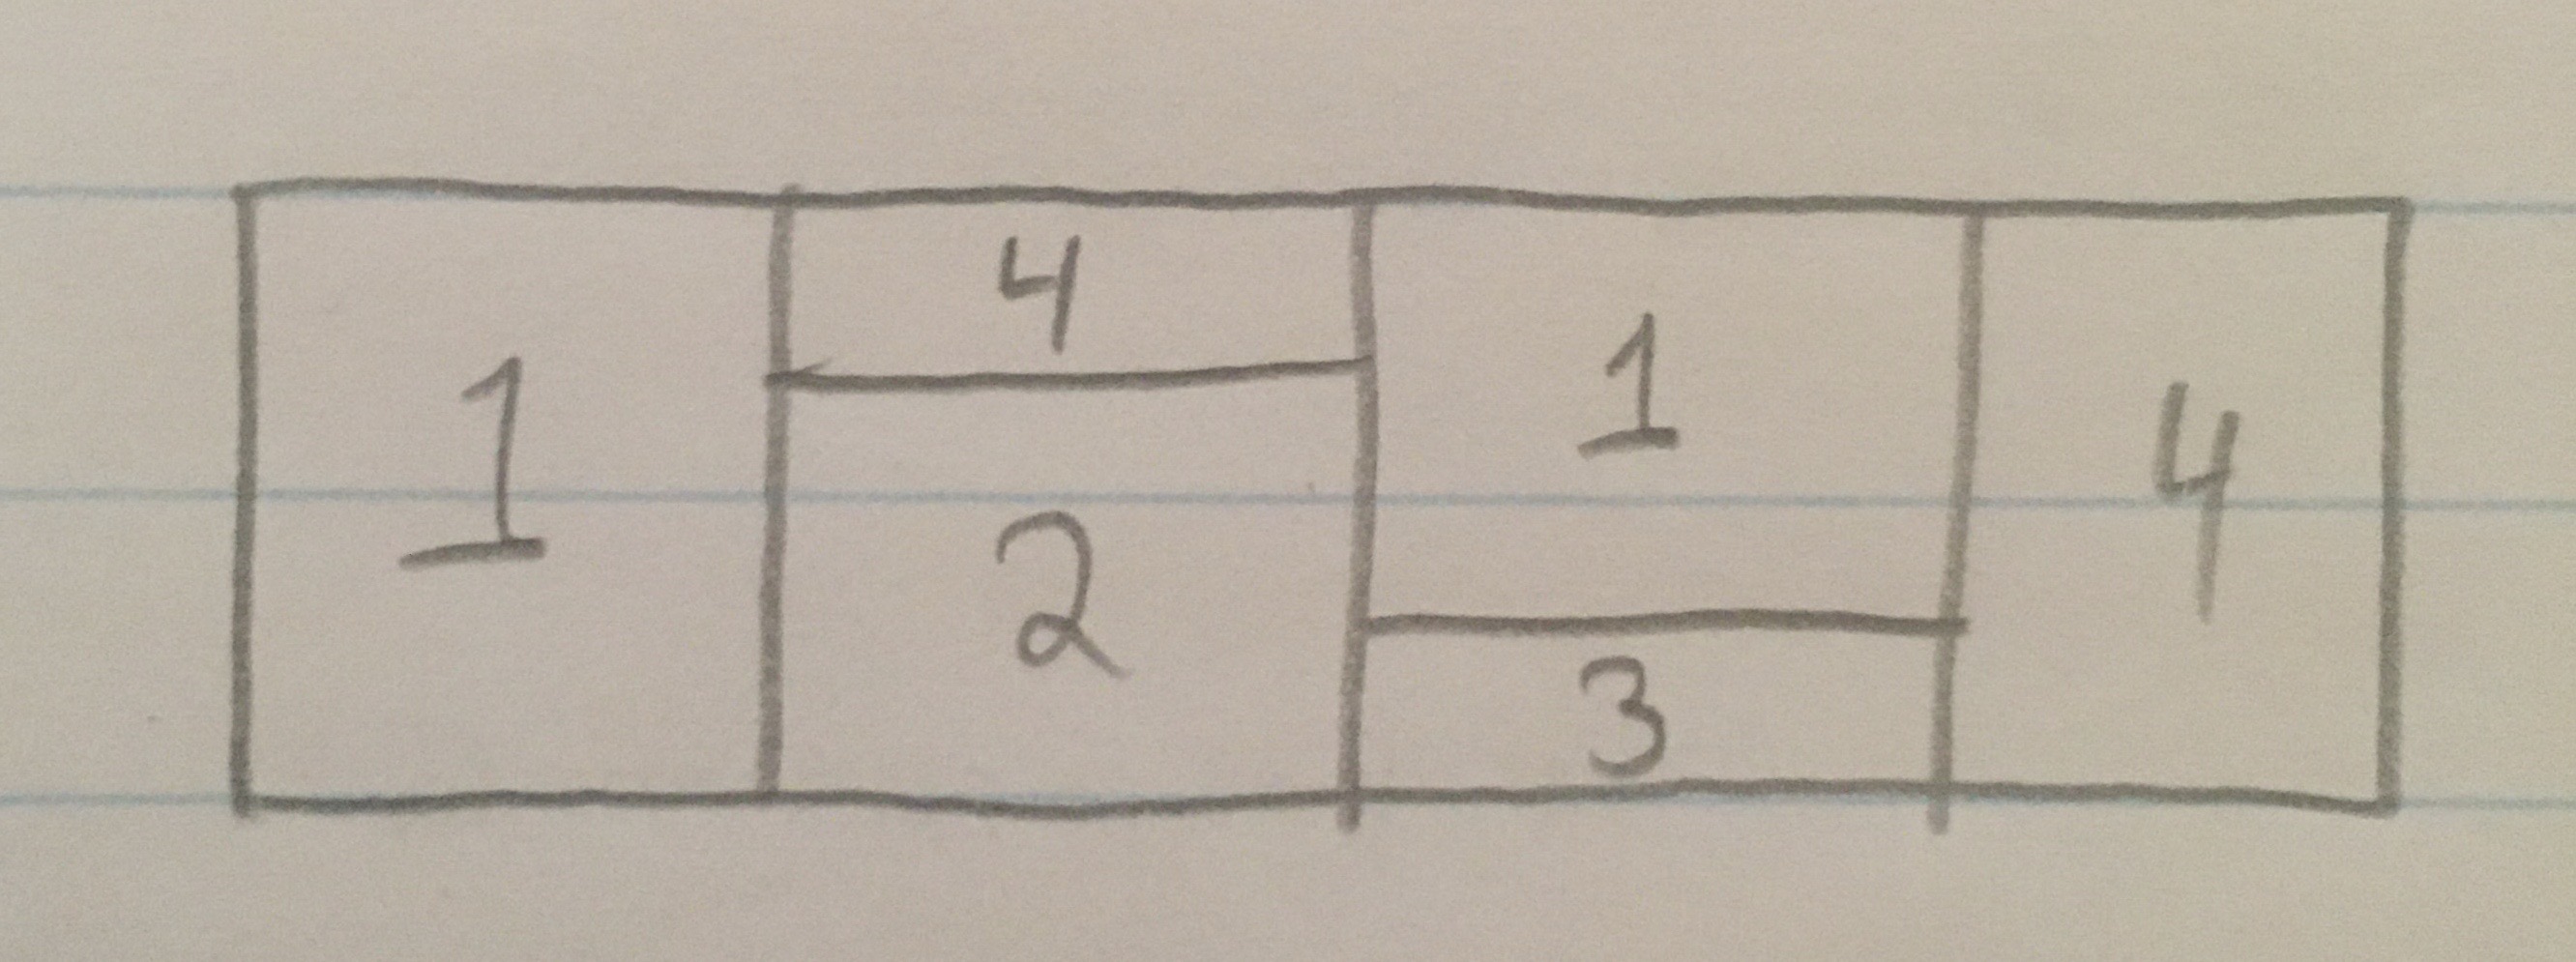 1
4
2
1
3
4